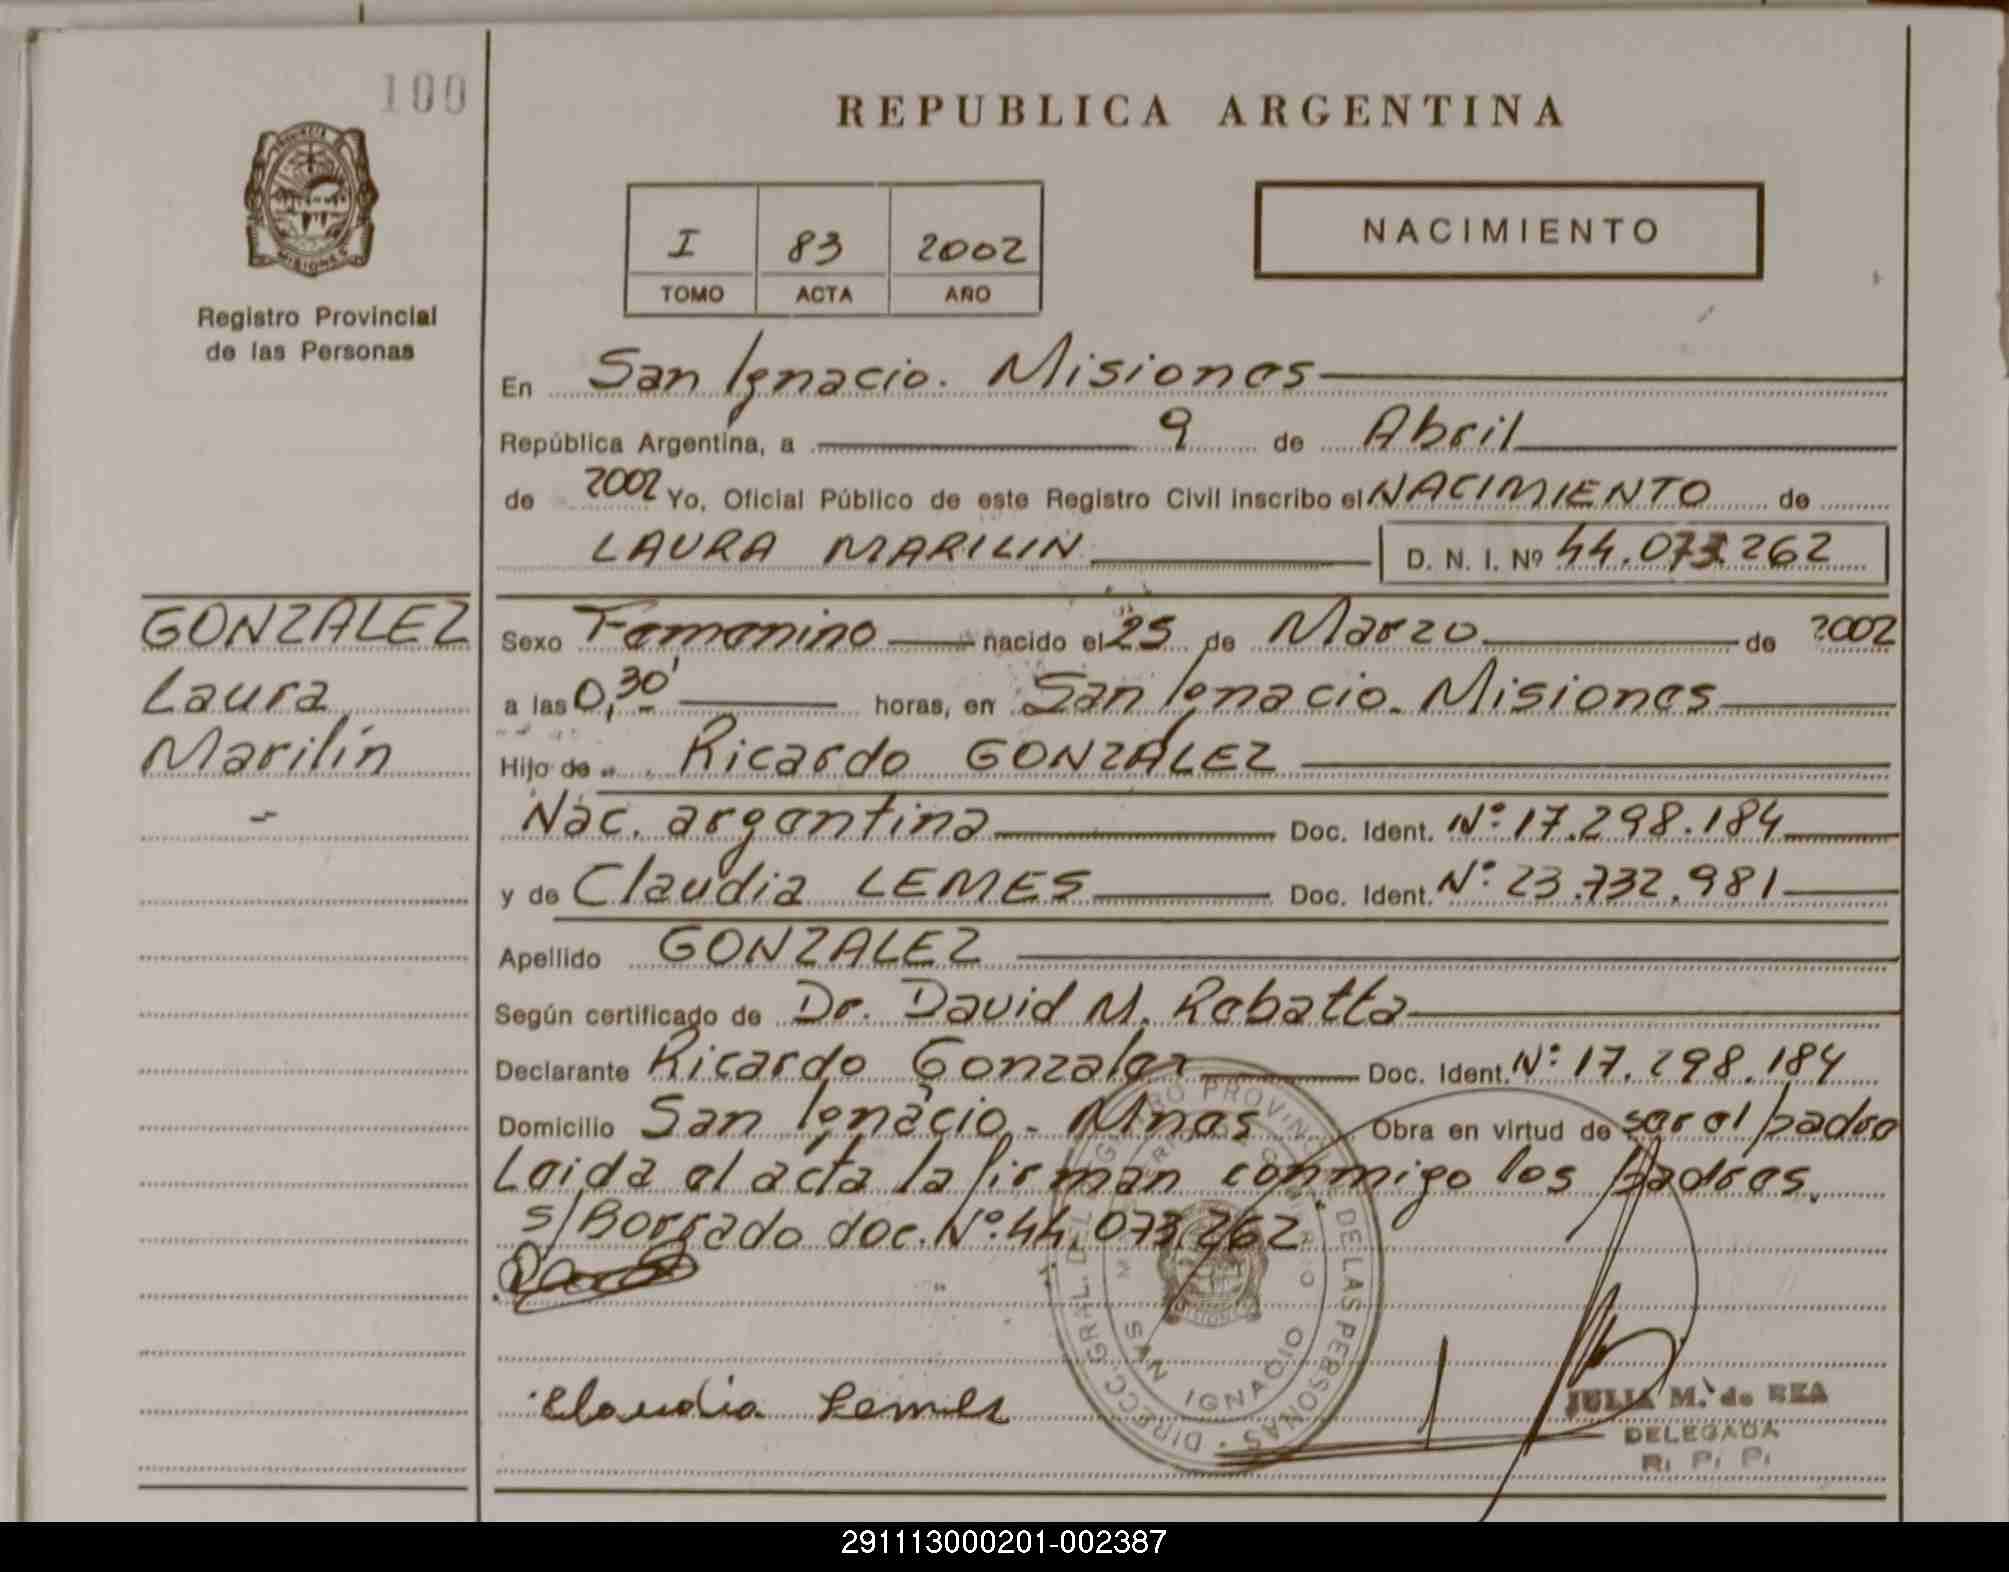 100
REPUBLICA ARGENTINA
I 83 2002
TOMO ACTA AÑO
NACIMIENTO
MISIONES
Registro Provincial
de las Personas
En San Ignacio. Misiones
República Argentina, a 9 de Abril
de 2002 Yo, Oficial Público de este Registro Civil inscribo el NACIMIENTO de
LAURA MARILIN D. N. I. Nº 44.073.262
GONZALEZ
Laura
Marilín
Sexo Femenino nacido el 25 de Marzo de 2002
a las 0,30' horas, en San Ignacio. Misiones
Hijo de Ricardo GONZÁLEZ
Nac. argentina Doc. Ident. Nº 17.298.184
y de Claudia LEMES Doc. Ident. Nº 23.732.981
Apellido GONZALEZ
Según certificado de Dr. David M. Rebatta
Declarante Ricardo Gonzalez Doc. Ident. Nº 17.298.184
Domicilio San Ignacio - Mnes Obra en virtud de ser el padre
Leida el acta la firman conmigo los padres.
s/Borrado doc. Nº 44.073.262
Claudia Lemes
DIRECC. GRAL. DEL REGISTRO PROVINC. DE LAS PERSONAS
SAN IGNACIO
JULIA M. de REA
DELEGADA
R. P. P.
291113000201-002387